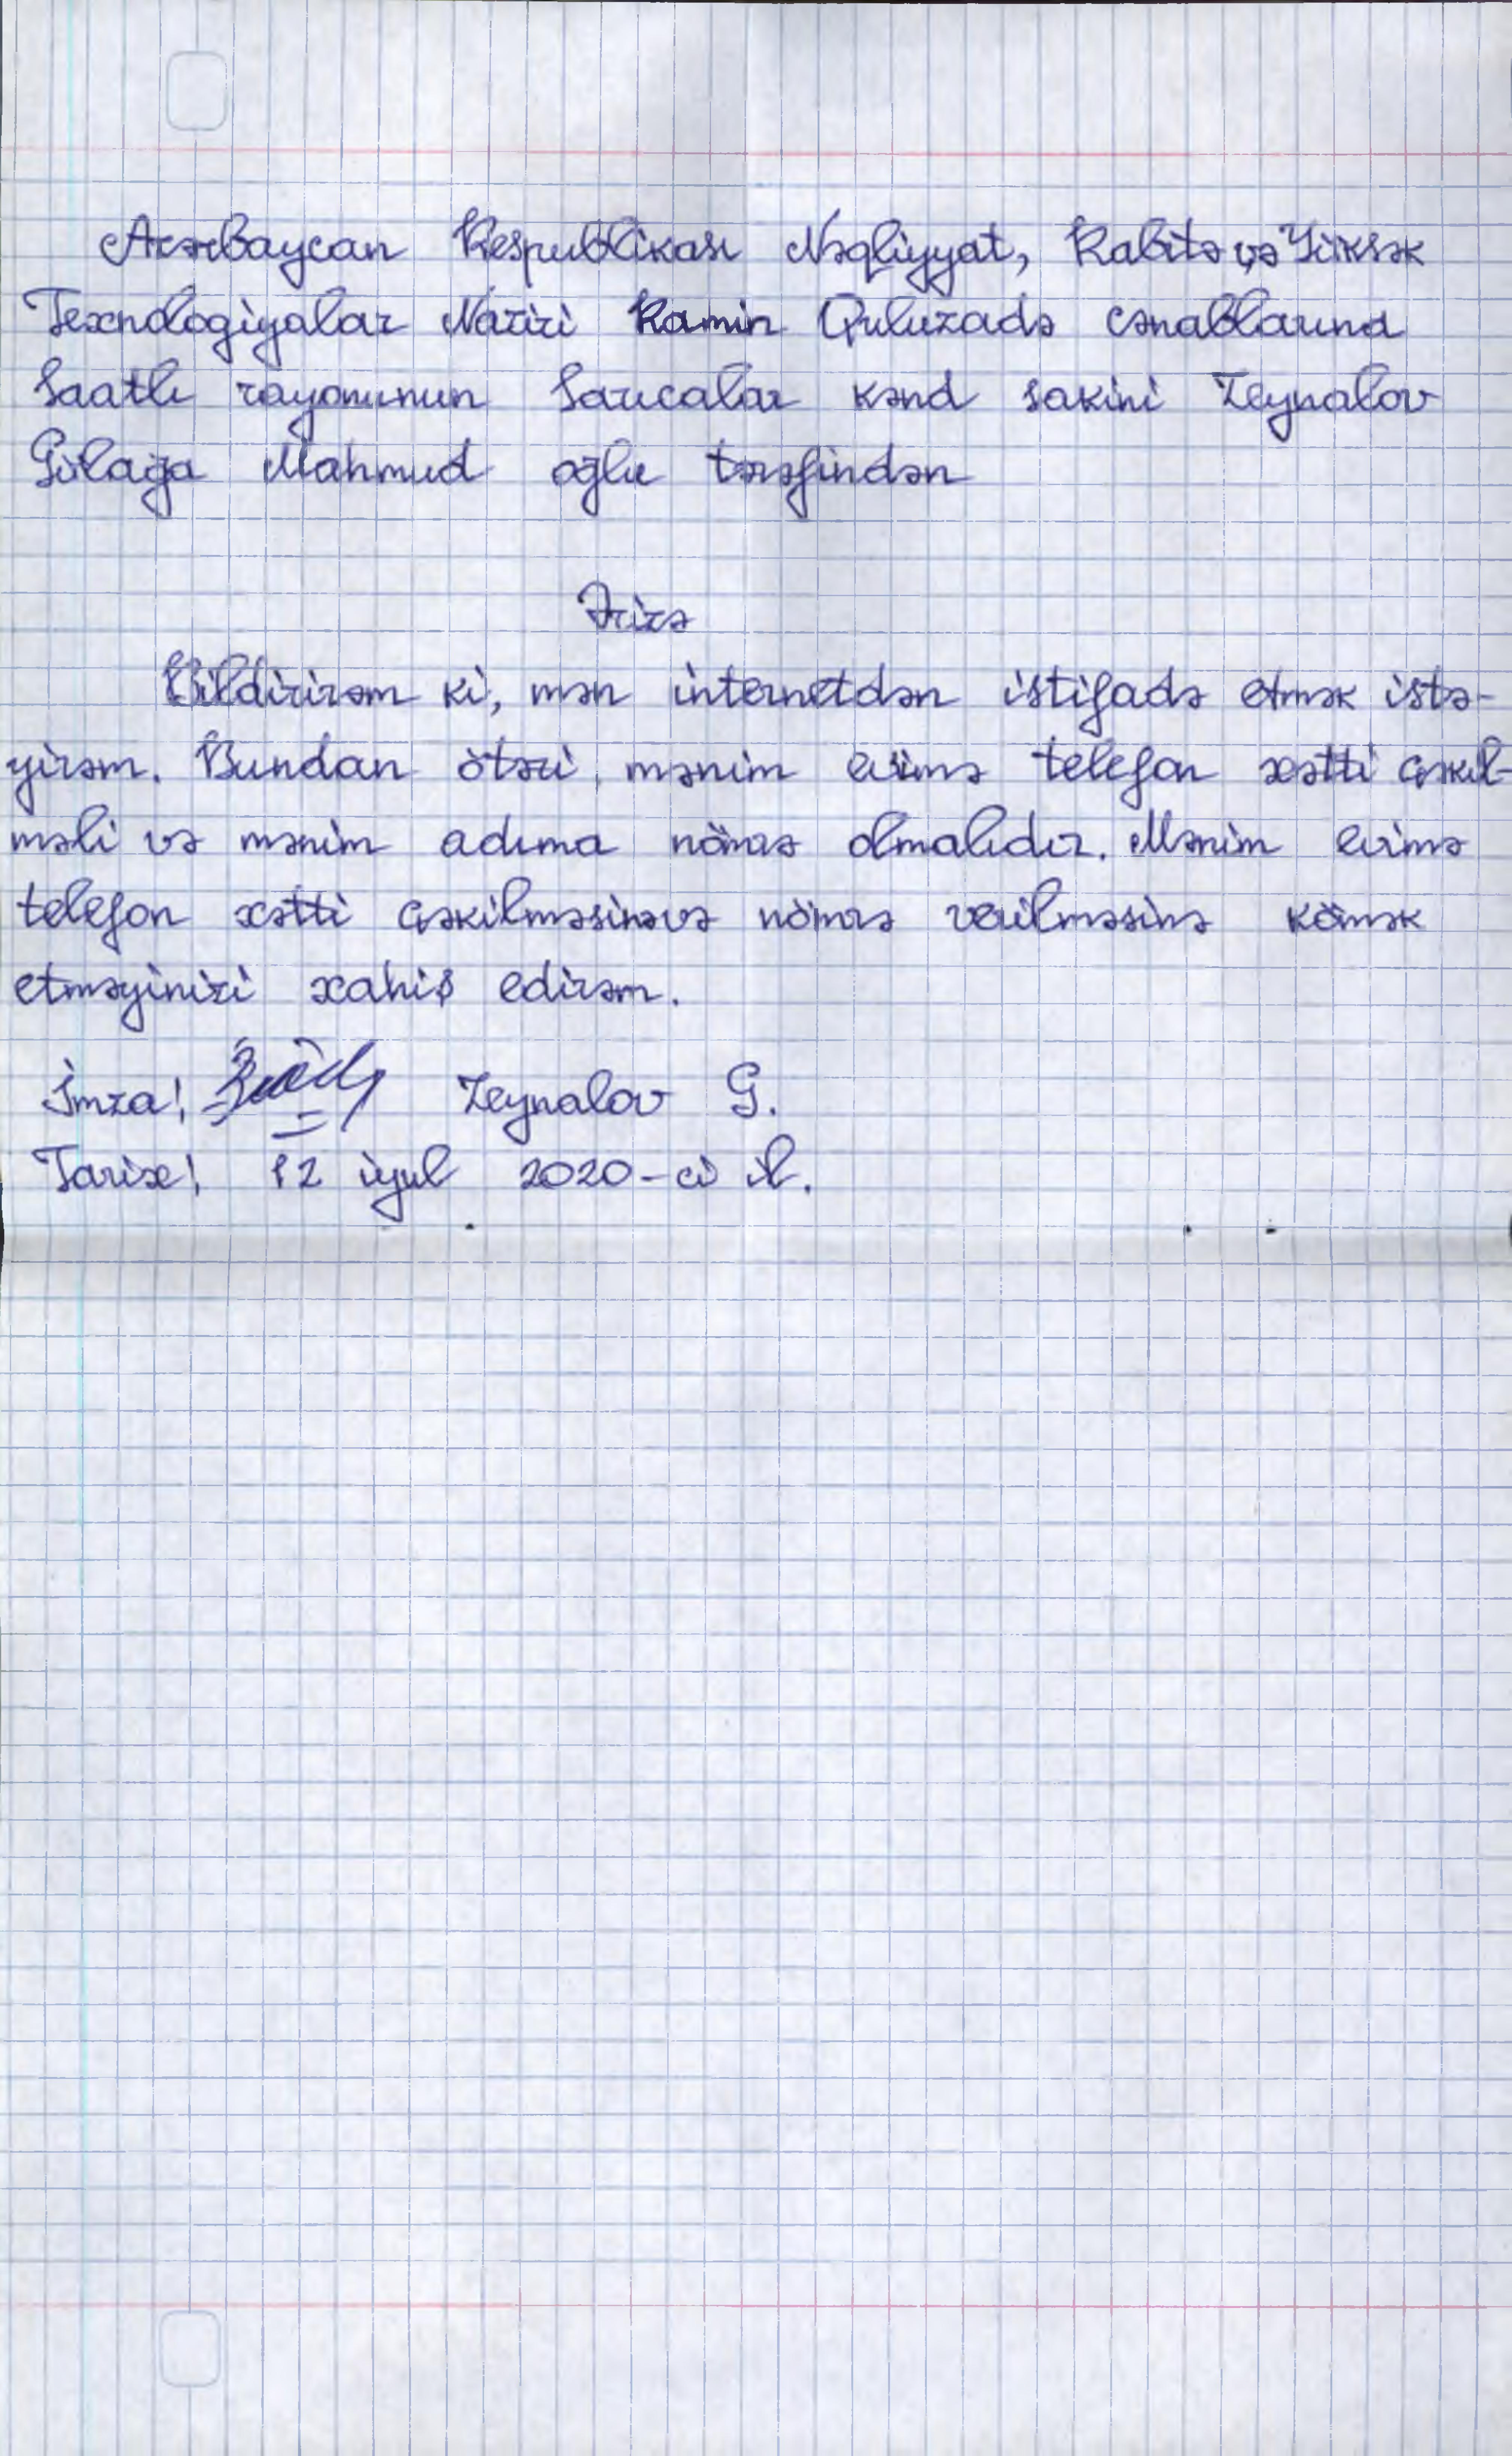 Azərbaycan Respublikası Nəqliyyat, Rabitə və Yüksək
Texnologiyalar Naziri Ramin Quluzadə cənablarına
Saatlı rayonunun Sarıcalar kənd sakini Zeynalov
Gülağa Mahmud oğlu tərəfindən
Ərizə
Bildirirəm ki, mən internetdən istifadə etmək istə-
yirəm. Bundan ötəri mənim evimə telefon xətti çəkil-
məli və mənim adıma nömrə olmalıdır. Mənim evimə
telefon xətti çəkilməsinəvə nömrə verilməsinə kömək
etməyinizi xahiş edirəm.
İmza: Zeynalov G.
Tarix: 12 iyul 2020-ci il.